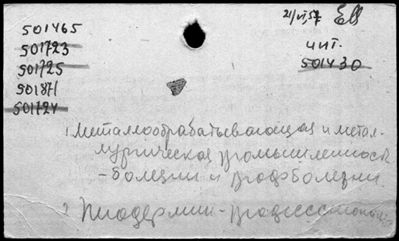 501465
501723
501725
501871
501724
21/VI 57
чит.
501430
1. Металлообрабатывающая и метал-
лургическая промышленность
- болезни и профболезни
2 Пиодермии - профессиональн